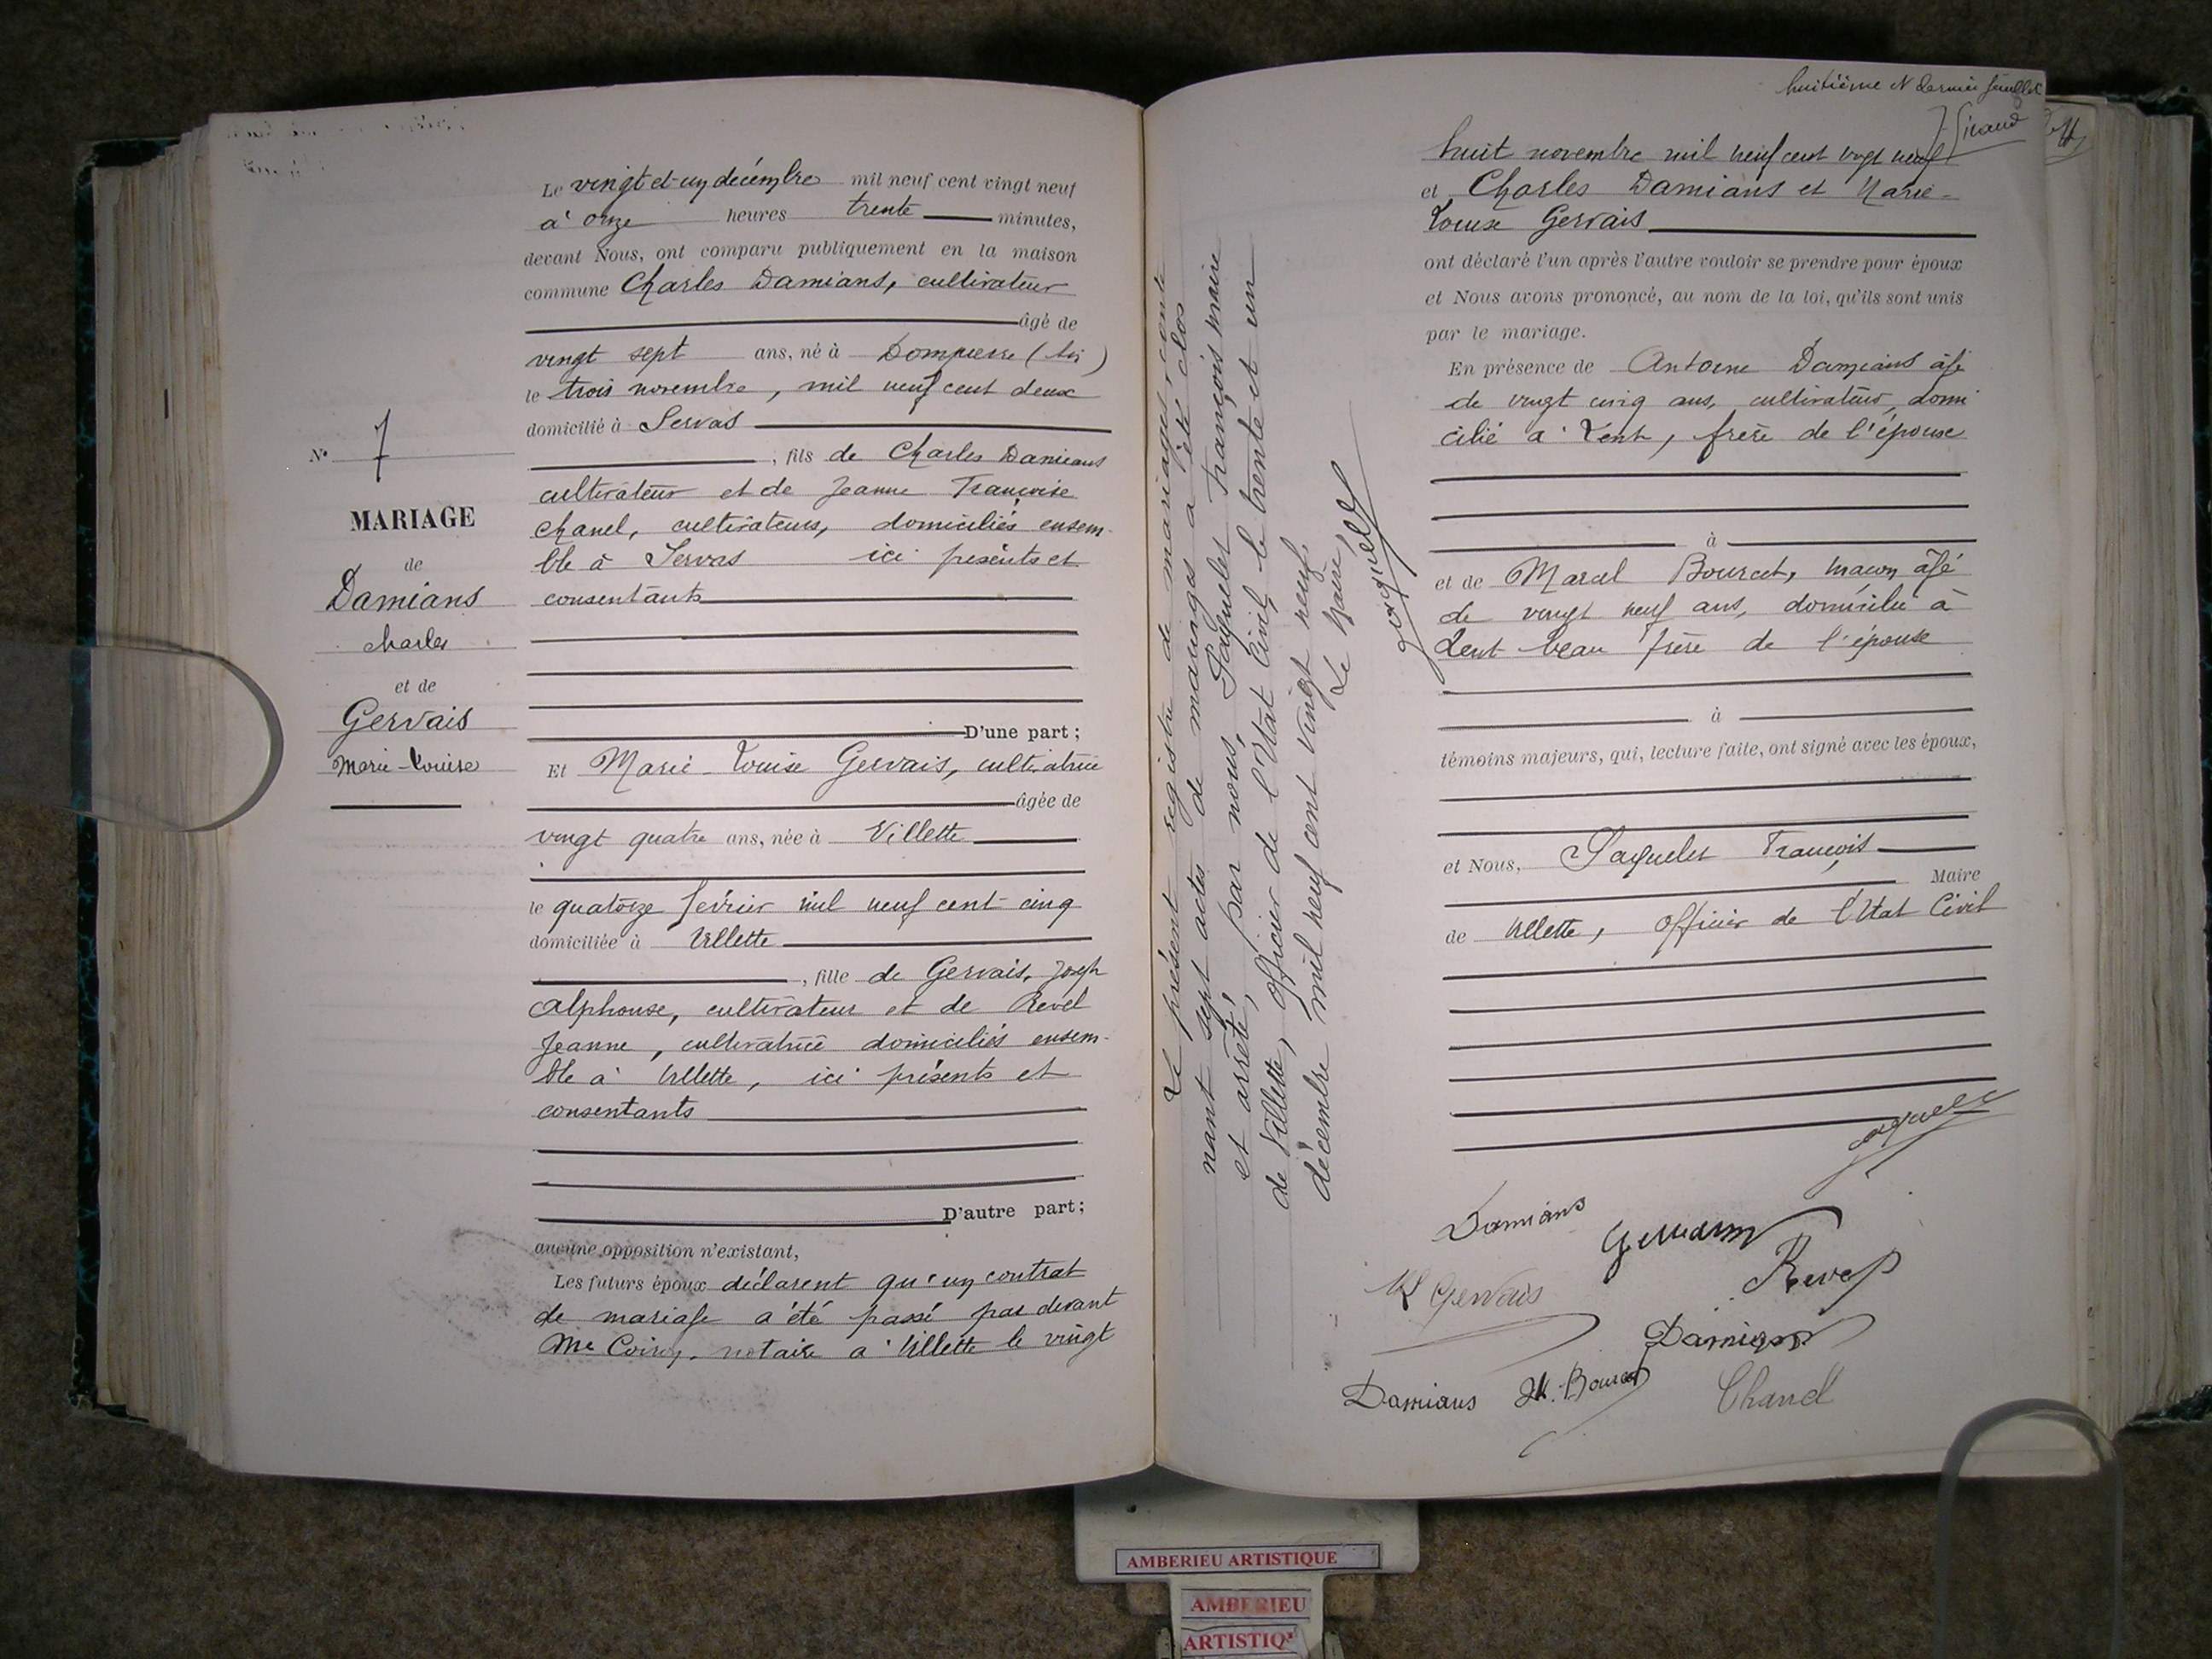 N° 7
MARIAGE
de
Damians
Charles
et de
Gervais
Marie-Louise
Le vingt et un décembre mil neuf cent vingt neuf
à onze heures trente minutes,
devant Nous, ont comparu publiquement en la maison
commune Charles Damians, cultivateur
âgé de
vingt sept ans, né à Dompierre (Ain)
le trois novembre, mil neuf cent deux
domicilié à Servas
, fils de Charles Damians
cultivateur et de Jeanne Françoise
Chanel, cultivateurs, domiciliés ensem-
ble à Servas ici présents et
consentants
D'une part ;
Et Marie-Louise Gervais, cultivatrice
âgée de
vingt quatre ans, née à Villette
le quatorze février mil neuf cent cinq
domiciliée à Villette
, fille de Gervais, Joseph
Alphonse, cultivateur et de Revel
Jeanne, cultivatrice domiciliés ensem-
ble à Villette, ici présents et
consentants
D'autre part ;
aucune opposition n'existant,
Les futurs époux déclarent qu'un contrat
de mariage a été passé par devant
Me Coiron, notaire à Villette le vingt
Le présent registre de mariages, conte
nant sept actes de mariages a été clos
et arrêté, par nous, Paquelet François maire
de Villette, officier de l'Etat Civil, le trente et un
décembre mil neuf cent vingt neuf.
Le Maire,
huitième et dernier feuillet
huit novembre mil neuf cent vingt neuf
et Charles Damians et Marie-
Louise Gervais
ont déclaré l'un après l'autre vouloir se prendre pour époux
et Nous avons prononcé, au nom de la loi, qu'ils sont unis
par le mariage.
En présence de Antoine Damians âgé
de vingt cinq ans, cultivateur, domi
cilié à Lent, frère de l'épouse
à
et de Marcel Bourcet, maçon âgé
de vingt neuf ans, domicilié à
Lent beau frère de l'épouse
à
témoins majeurs, qui, lecture faite, ont signé avec les époux,
et Nous, Paquelet François
Maire
de Villette, officier de l'Etat Civil
Damians
ML Gervais
Revel
Damians
Damians M. Bourcet Chanel
AMBERIEU ARTISTIQUE
AMBERIEU
ARTISTIQ